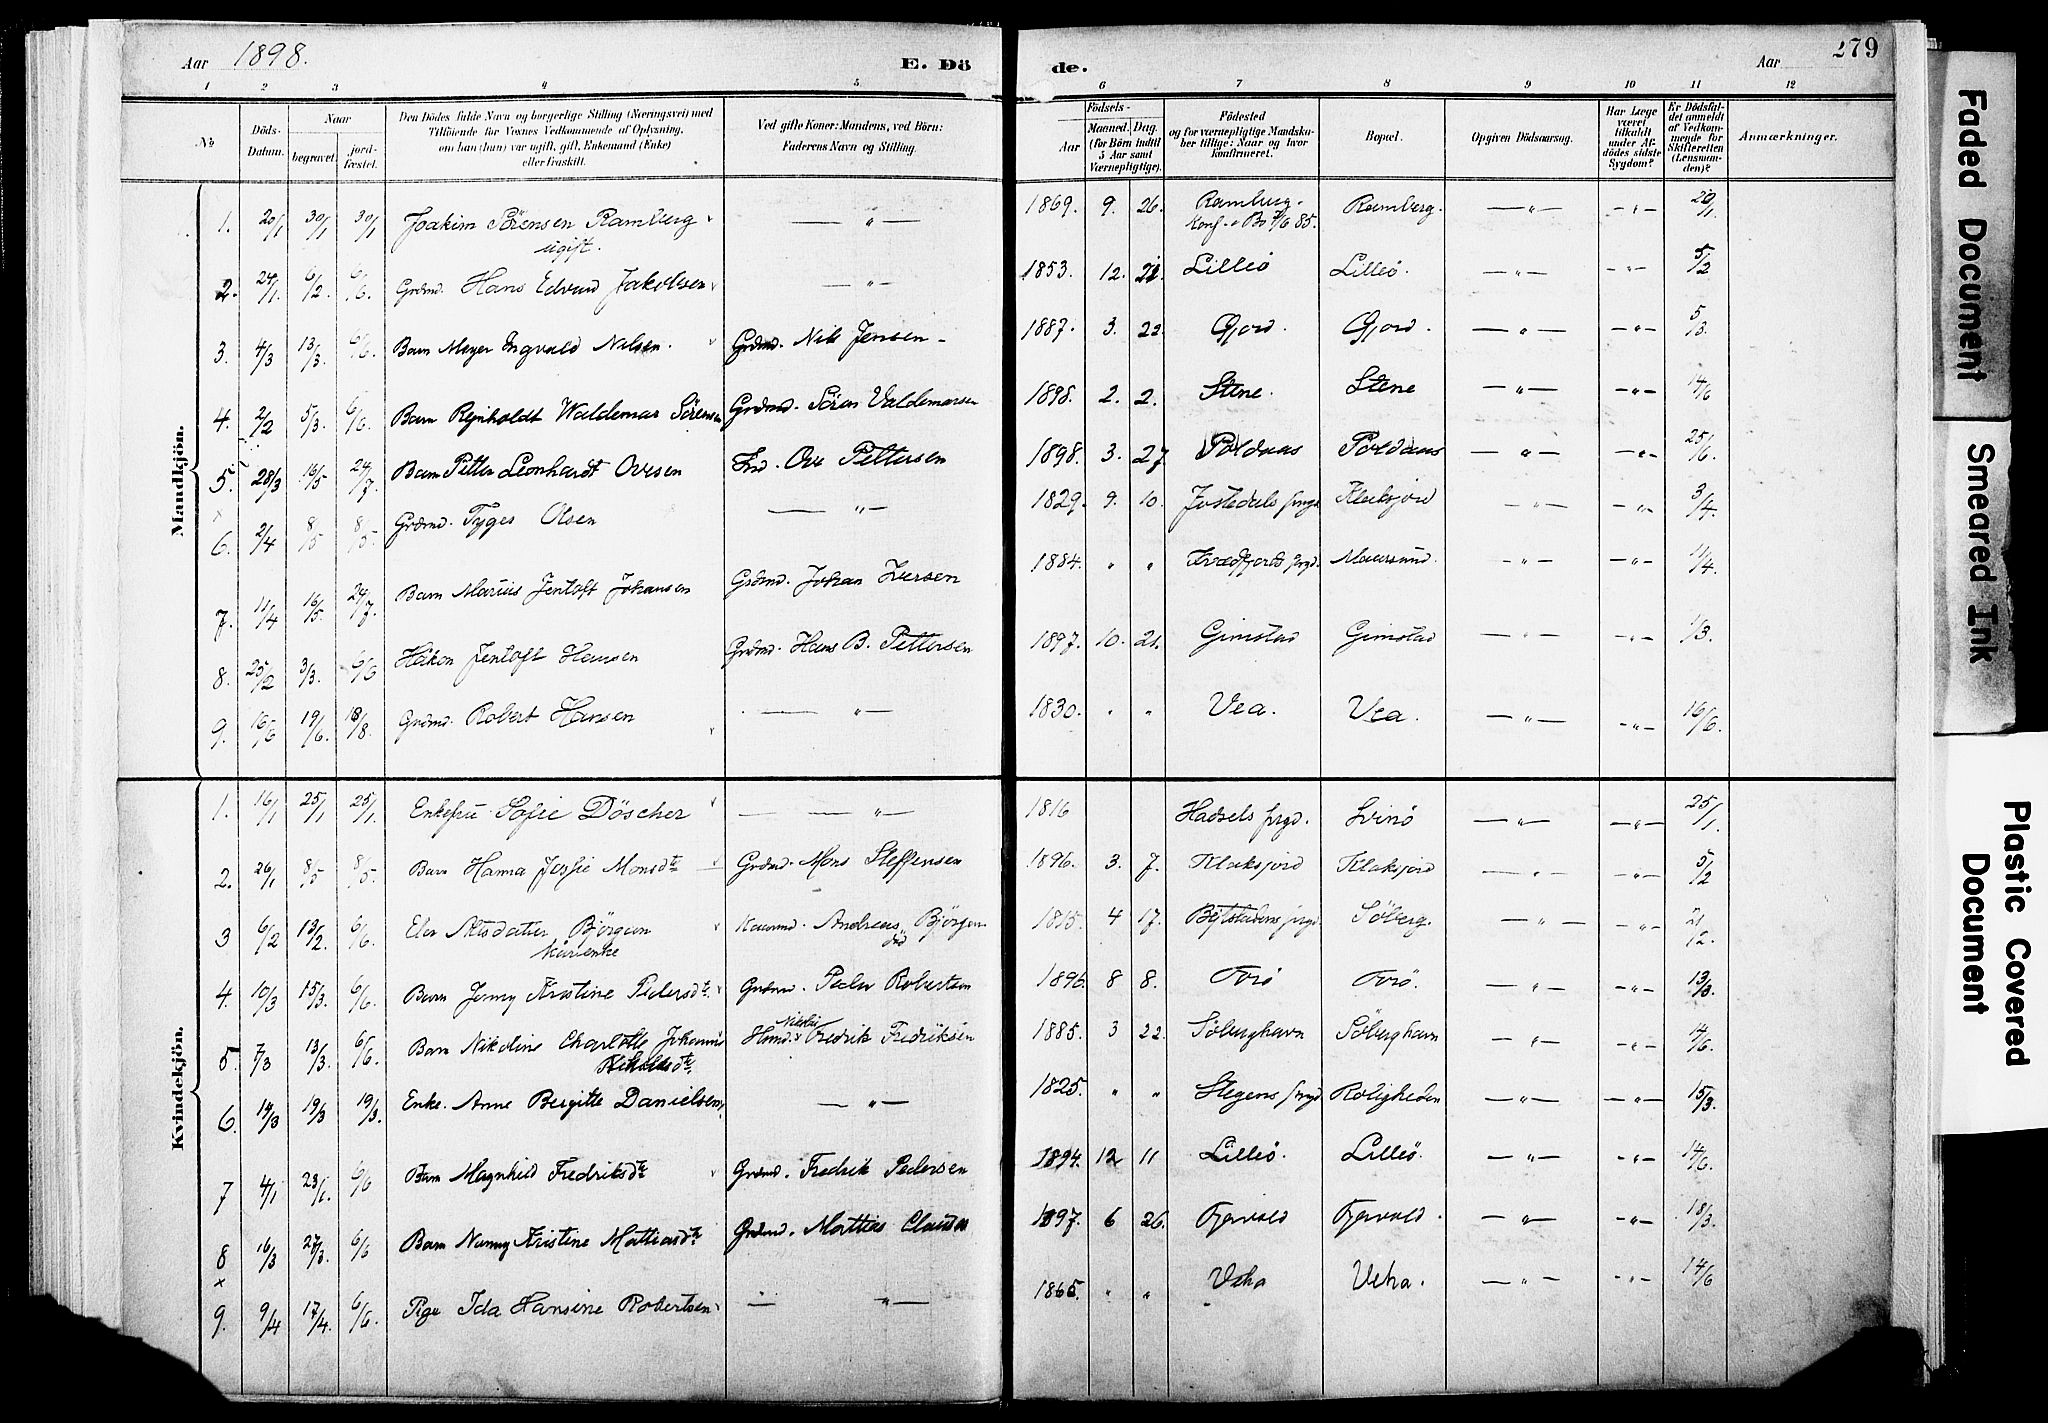 Aar 1898.
E. Dö
de.
Aar
279
1 2 3 4 5 6 7 8 9 10 11 12
No
Döds-Datum.
Naar
begravet.
jord-fæstet.
Den Dödes fulde Navn og borgerlige Stilling (Næringsvei) med
Tilföiende for Voxnes Vedkommende af Oplysning,
om han (hun) var ugift, gift, Enkemand (Enke)
eller fraskilt.
Ved gifte Koner: Mandens, ved Börn:
Faderens Navn og Stilling.
Födsels-
Aar
Maaned. Dag.
(for Börn indtil
5 Aar samt
Værnepligtige).
Födested
og for værnepligtige Mandska-
ber tillige: Naar og hvor
konfirmeret.
Bopæl.
Opgiven Dödsaarsag.
Har Læge
været
tilkaldt
under Af-
dödes sidste
Sygdom?
Er Dödsfal-
det anmeldt
af Vedkom-
mende for
Skifteretten
(Lensman-
den)?
Anmærkninger.
Mandkjön.
1. 20/1 30/1 30/1 Joakim Sörensen Ramberg — " — 1869. 9. 26. Ramberg. Ramberg. — " — — " — 20/1.
ugift. Konf. i Bö 7/6 85.
2. 24/1. 6/2. 6/6. Grdmd. Hans Edvard Jakobsen — " — 1853. 12. Lilleö Lilleö. — " — — " — 5/2
3. 4/3 13/3. 6/6. Barn Meyer Ingvald Nilsen. Grdmd. Nils Jensen — 1887. 3. 22. Gjord. Gjord. — " — — " — 5/3.
4. 2/2 5/3. 6/6. Barn Rejnholdt Waldemar Sörensen Grdmd. Sören Valdemarsen 1898. 2. 2. Stene. Stene — " — — " — 14/6
5. 28/3 16/5 24/7. Barn Petter Leonhardt Ovesen Ind. Ove Pettersen 1898. 3. 27 — " — — " — 25/6.
6. 2/4 8/5 8/5. Grdmd. Tyges Olsen — " — 1829. 9. 10. Jostedals prgd Klaksjord — " — — " — 3/4.
7. 11/4 16/5. 24/7. Barn Marius Jentoft Johansen Grdmd. Johan Iversen 1884. " " Kvædfjords prgd. Maursund. — " — — " — 11/4.
8. 25/2 3/3. 6/6 Håkon Jentoft Hansen Grdmd. Hans B. Pettersen 1897. 10. 21. Gimstad Gimstad — " — — " — 1/3.
9. 16/6 19/6. 18/8. Grdmd. Robert Hansen — " — 1830. " " Vea. Vea. — " — — " — 16/6.
Kvindekjön.
1. 16/1 25/1 25/1. Enkefru Sofie Döscher — — " — 1816 Hadsels prgd. Svinö — " — — " — 25/1.
2. 26/1 8/5 8/5. Barn Hanna Josfie Monsdtr Grdmd. Mons Steffensen 1896. 3. 7. Klaksjord Klaksjord — " — — " — 5/2
3 6/2 13/2. 6/6. Elen Björgan Andreas Björgan 1815. 4 17. Söberg. — " — — " — 21/2.
Kårenke död
4. 10/3 15/3. 6/6. Barn Jenny Kristine Pedersdtr. Grdmd. Peder Robertsen 1896. 8 8. — " — — " — 13/3.
5. 7/3 13/3. 6/6. Barn Nikoline Charlotte Johanne Hmd. Nikolai Fredrik Fredriksen 1885. 3 22. Söberghavn Söberghavn — " — — " — 14/6.
Nikolaisdtr.
6. 14/3 19/3 19/3. Enke. Anne Bergitte Danielsen. — " — 1825. " " Stegens prgd Roligheden — " — — " — 15/3.
7 4/1 23/1. 6/6 Barn Magnhild Fredriksdtr Grdmd. Fredrik Pedersen 1894. 12 11 Lilleö. Lilleö. — " — — " — 14/6.
8 16/3 27/3. 6/6 Barn Nanny Kristine Mattiasdtr Grdmd. Mattias Clausen 1897. 6 26. — " — — " — 18/3.
9. 9/4 17/4. 6/6. Pige Ida Hansine Robertsen — " — 1865. " " Veha Veha. — " — — " — 14/6
Faded Document
Smeared Ink
Plastic Covered
Document